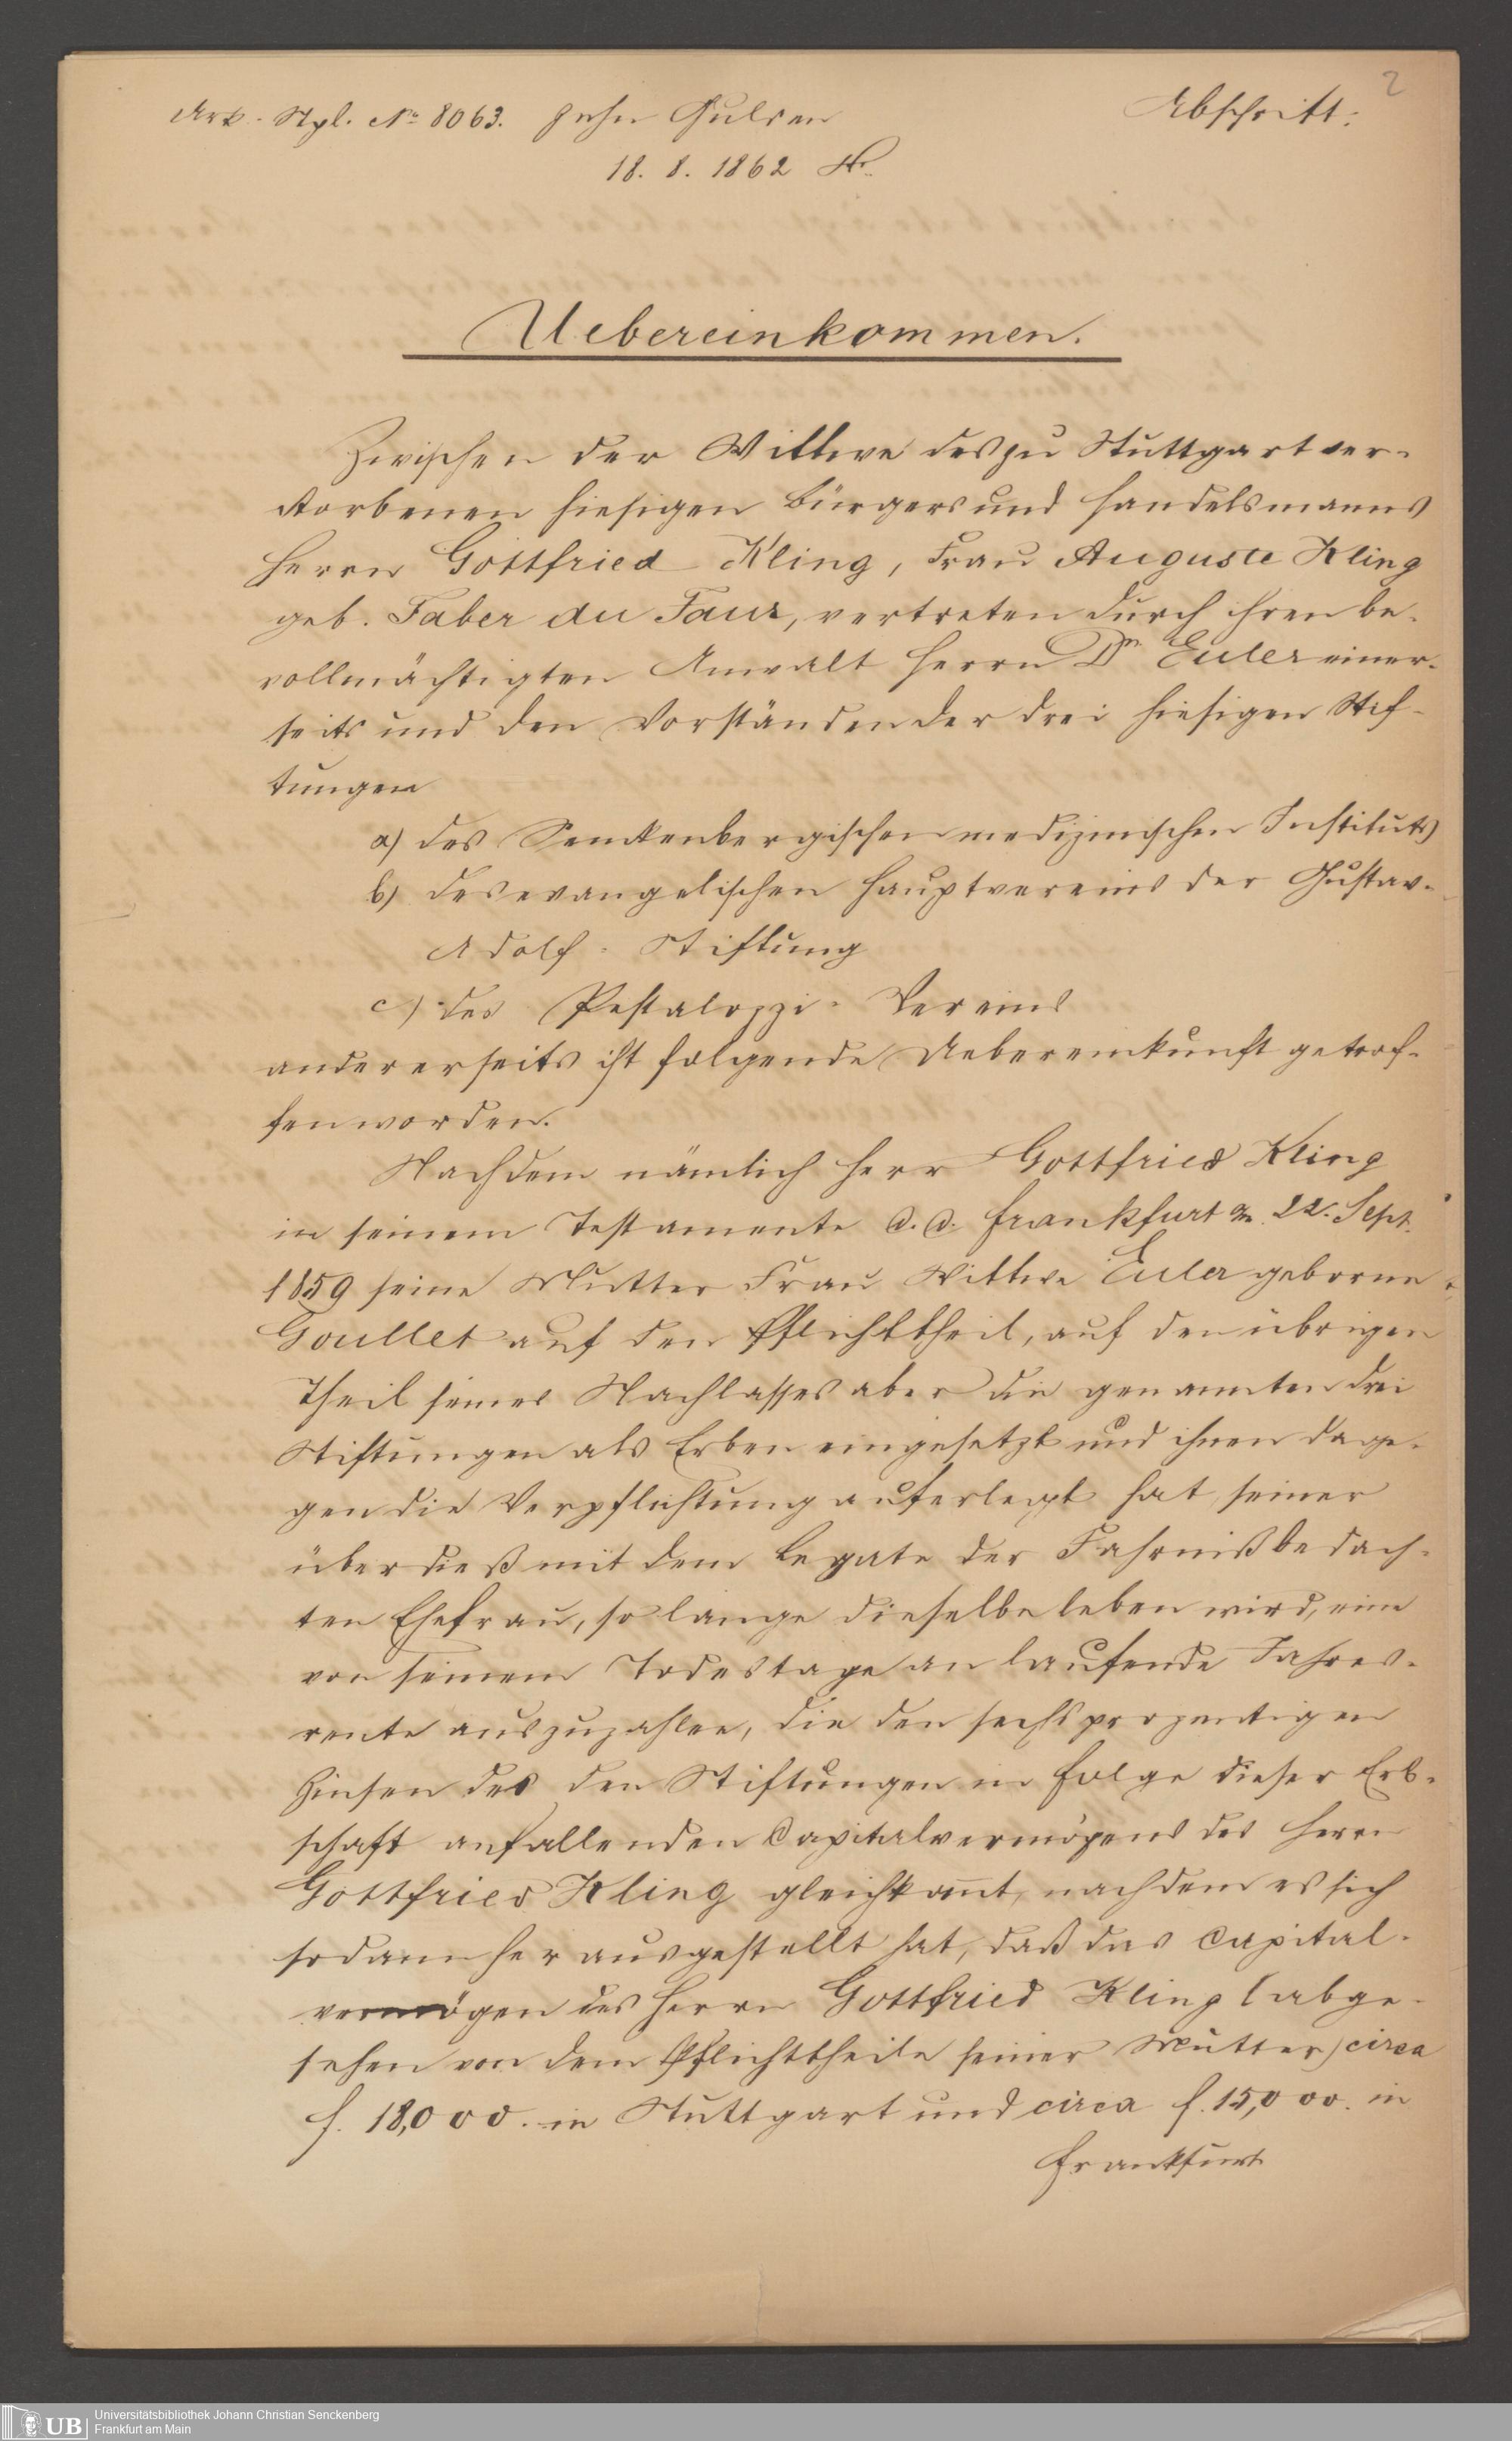 2
Abschritt:
Ark. Stpl. No 8063. Zehn Gulden
18. 8. 1862
Uebereinkommen.
Zwischen der Wittwe des zu Stuttgart ver-
storbenen hiesigen Bürgers und Handelsmanns
Herrn Gottfried Kling, Frau Auguste Kling
geb. Faber du Faur, vertreten durch ihren be-
vollmächtigten Anwalt Herrn Dr. Euler einer-
seits und den Vorständen der drei hiesigen Stif-
tungen
a) des Senckenbergischen medizinischen Instituts
b) des evangelischen Hauptvereins der Gustav-
Adolf-Stiftung
c) des Pestalozzi-Vereins
andererseits ist folgende Uebereinkunft getrof-
fen worden.
Nachdem nämlich Herr Gottfried Kling
in seinem Testamente d. d. Frankfurt a/m. 22. Sept.
1859 seine Mutter Frau Wittwe Euler geborne
Goullet auf den Pflichttheil, auf den übrigen
Theil seines Nachlasses aber die genannten drei
Stiftungen als Erben eingesetzt und ihnen dage-
gen die Verpflichtung auferlegt hat, seiner
überdieß mit dem Legate der Fahrniß bedach-
ten Ehefrau, so lange dieselbe leben wird, eine
von seinem Todestage an laufende Jahres-
rente auszuzahlen, die den sechsprozentigen
Zinsen des den Stiftungen in Folge dieser Erb-
schaft anfallenden Capitalvermögens des Herrn
Gottfried Kling gleichkom̄t, nachdem es sich
sodann herausgestellt hat, daß das Capital-
vermögen des Herrn Gottfried Kling (abge-
sehen von dem Pflichttheile seiner Mutter) circa
f. 18,000. in Stuttgart und circa f. 15,000. in
Frankfurt
UB
Universitätsbibliothek Johann Christian Senckenberg
Frankfurt am Main